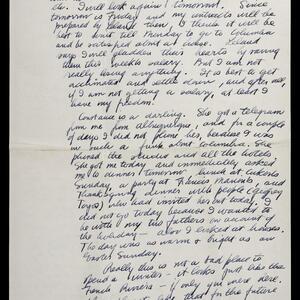 do. I will look again tomorrow. Since
tomorrow is Friday and my contracts will be
prepared by Leland then I think it will be
best to wait till Monday to go to Columbia
and be satisfied about a raise. Leland
says I will gladden their hearts by saving
them this weeks salary. But I am not
really losing anything. It is best to get
acclimated and settle down, and after all,
if I am not getting a salary, at least I
have my freedom.
Constance is a darling. She got a telegram
from me from Albuquerque, and for a couple
of days I did not phone her, because I was
in such a funk about Columbia. She
phoned the studios and all the hotels.
She got me today and immediately asked
me to dinner tomorrow, lunch at
Sunday, a party at
Thanksgiving dinner with people
who had invited her but today. I
did not go today because I wanted to
be with my
the holiday — also I looked at houses.
The day was as warm & bright as an
Easter Sunday.
Really this is not a bad place to
spend a winter — it looks just like the
French Riviera — if only you were here.
for the future